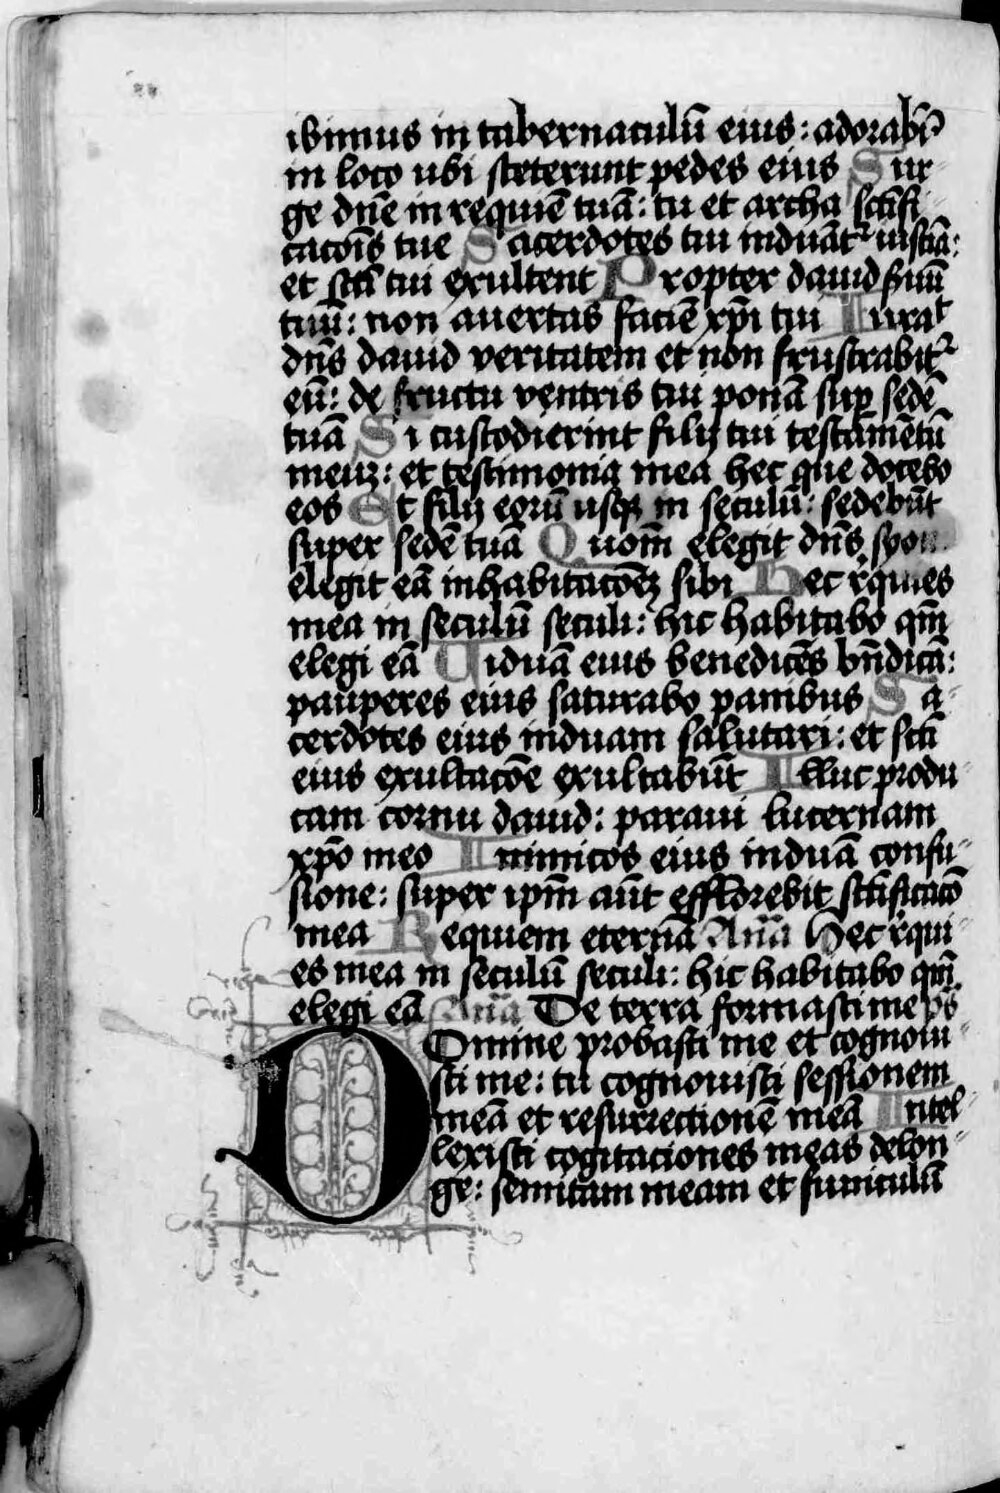 ibimus in tabernaculū eius: adorabim᷒
in loco ubi steterunt pedes eius Sur-
ge dñe in requiē tuā: tu et archa sctīfi-
cacōis tue Sacerdotes tui induāt᷑ iusticiā:
et sctī tui exultent Propter dauid seruū
tuū: non auertas faciē xp̄i tui Iurauit
dñs dauid veritatem et non frustrabit᷑
eū: de fructu ventris tui ponā sup̱ sedē
tuā Si custodierint filij tui testamētū
meuꝫ: et testimonia mea hec que docebo
eos Et filij eorū usqꝫ in seculū: sedebūt
super sedē tuā Quom̄ elegit dñs syon
elegit eā inhabitacōeꝫ sibi Hec r̄quies
mea in seculū seculi: hic habitabo qm̄
elegi eā Uiduā eius benedicēs bn̄dicā:
pauperes eius saturabo panibus Sa-
cerdotes eius induam salutari: et sctī
eius exultacōe exultabūt Illuc produ-
cam cornu dauid: paraui lucernam
xp̄o meo Inimicos eius induā confu-
sione: super ipm̄ aūt efflorebit sctīficacō
mea Requiem eternā Añā Hec r̄qui-
es mea in seculū seculi: hic habitabo qm̄
elegi eā Añā De terra formasti me p̄s
Domine probasti me et cognoui-
sti me: tu cognouisti sessionem
meā et resurrectionē meā Intel-
lexisti cogitaciones meas delon-
ge: semitam meam et funiculū